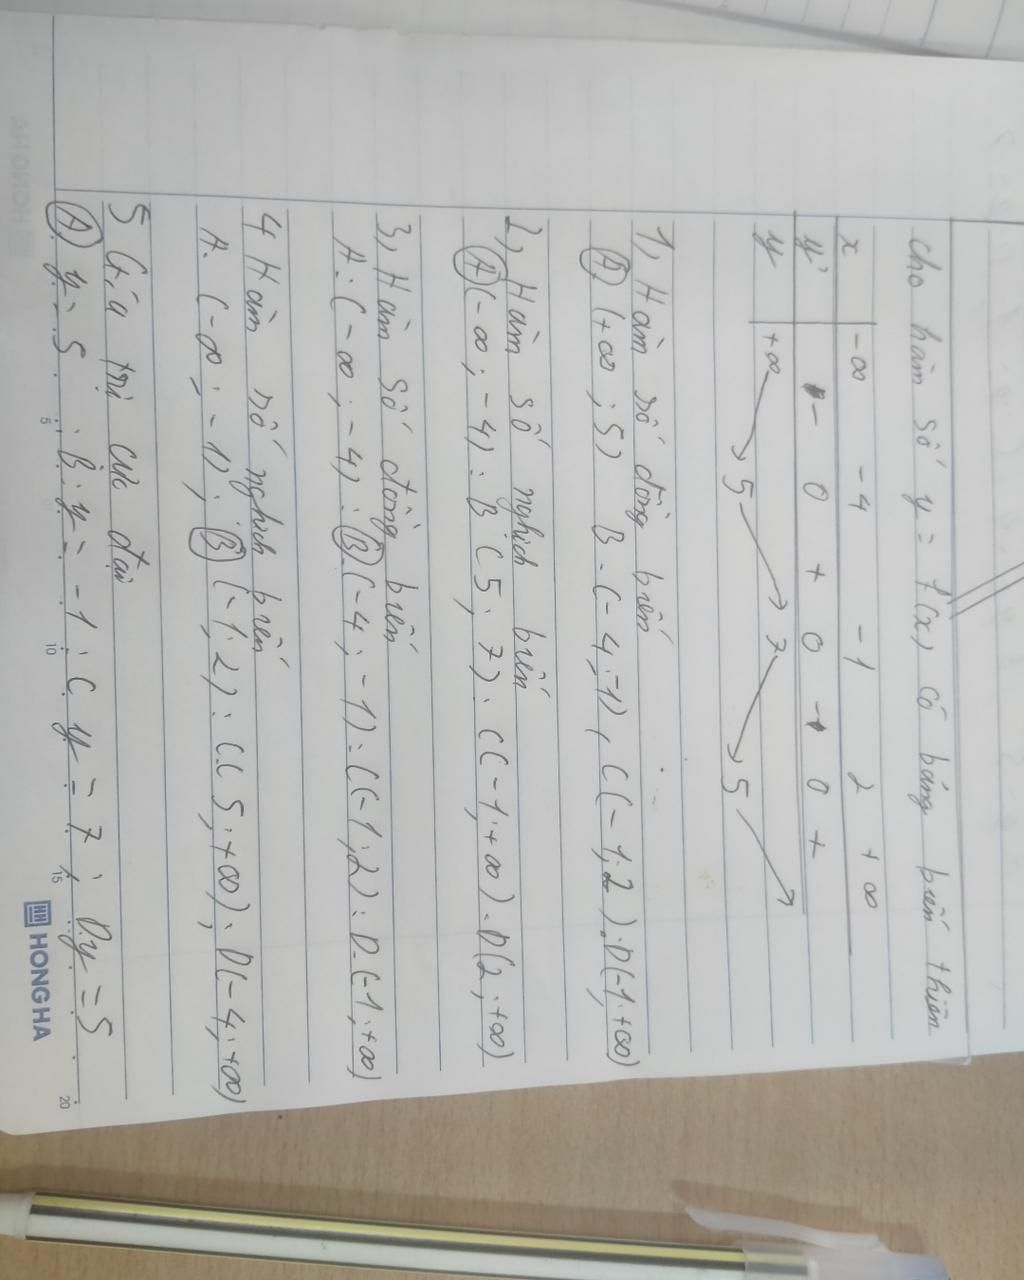 cho hàm số y = f(x) có bảng biến thiên
x -∞ -4 -1 2 +∞
y' - 0 + 0 - 0 +
y +∞ 5 7 5
1, Hàm số đồng biến
A) (+∞; 5) B. (-4; -1), C (-1; 2). D(-1; +∞)
2, Hàm số nghịch biến
A) (-∞; -4). B (5; 7). C (-1; +∞). D(2; +∞)
3, Hàm số đồng biến
A. (-∞; -4). B. (-4; -1). C (-1; 2). D. (-1; +∞)
4, Hàm số nghịch biến
A. (-∞; -1); B (-1; 2). C. (5; +∞). D(-4; +∞)
5 Giá trị cực đại
A) y = 5 . B. y = -1 . C y = 7 ; D. y = 5
5 10 15 20
HONG HA